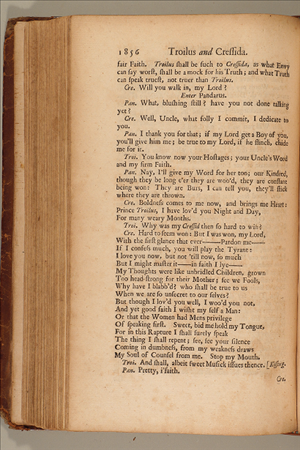 1856 Troilus and Cressida.
fair Faith. Troilus shall be such to Cressida, as what Envy
can say worst, shall be a mock for his Truth; and what Truth
can speak truest, not truer than Troilus.
Cre. Will you walk in, my Lord?
Enter Pandarus.
Pan. What, blushing still? have you not done talking
yet?
Cre. Well, Uncle, what folly I commit, I dedicate to
you.
Pan. I thank you for that; if my Lord get a Boy of you,
you'll give him me; be true to my Lord, if he flinch, chide
me for it.
Troi. You know now your Hostages; your Uncle's Word
and my firm Faith.
Pan. Nay, I'll give my Word for her too; our Kindred,
though they be long e'er they are woo'd, they are constant
being won: They are Burs, I can tell you, they'll stick
where they are thrown.
Cre. Boldness comes to me now, and brings me Heart:
Prince Troilus, I have lov'd you Night and Day,
For many weary Months.
Troi. Why was my Cressid then so hard to win?
Cre. Hard to seem won: But I was won, my Lord,
With the first glance that ever——Pardon me——
If I confess much, you will play the Tyrant:
I love you now, but not 'till now, so much
But I might master it——in faith I lye——
My Thoughts were like unbridled Children, grown
Too head-strong for their Mother; see we Fools,
Why have I blabb'd? who shall be true to us
When we are so unsecret to our selves?
But though I lov'd you well, I woo'd you not.
And yet good faith I wisht my self a Man:
Or that the Woman had Mens privilege
Of speaking first. Sweet, bid me hold my Tongue,
For in this Rapture I shall surely speak
The thing I shall repent; see, see your silence
Coming in dumbness, from my weakness draws
My Soul of Counsel from me. Stop my Mouth.
Troi. And shall, albeit sweet Musick issues thence. [Kissing.
Pan. Pretty, i'faith.
Cre.